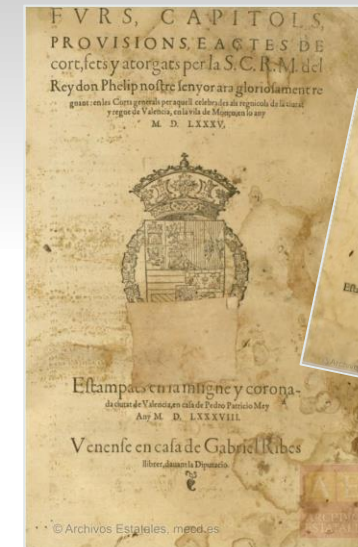 FVRS, CAPITOLS,
PROVISIONS, E ACTES DE
cort, fets y atorgats per la S. C. R. M. del
Rey don Phelip nostre senyor ara gloriosament re
gnant: en les Corts generals per aquell celebrades als regnicols de la ciutat
y regne de Valencia, en la vila de Monço en lo any
M. D. LXXXV.
Estampats en la insigne y corona-
da ciutat de Valencia, en casa de Pedro Patricio Mey
Any M. D. LXXXVIII.
Venense en casa de Gabriel Ribes
llibrer, dauant la Diputacio.
© Archivos Estatales, mecd.es
Esta